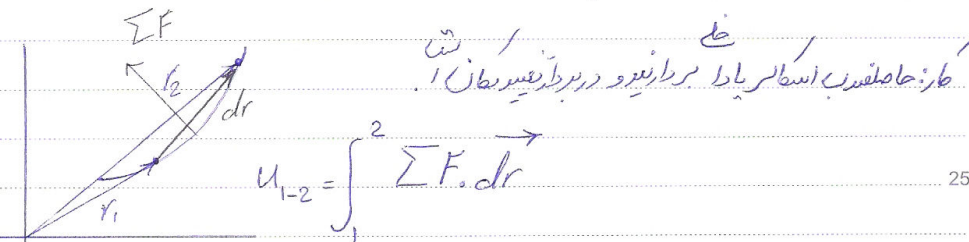 ΣF
خطی است
کار: حاصلضرب اسکالر یا داخلی بردار نیرو در بردار تغییر مکان
r₂
dr
U₁₋₂ = ∫₁² ΣF⃗ . dr⃗
r₁
25